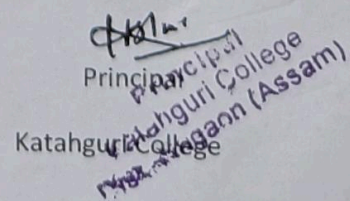 Principal
Katahguri College
Principal
Katahguri College
Nagaon (Assam)